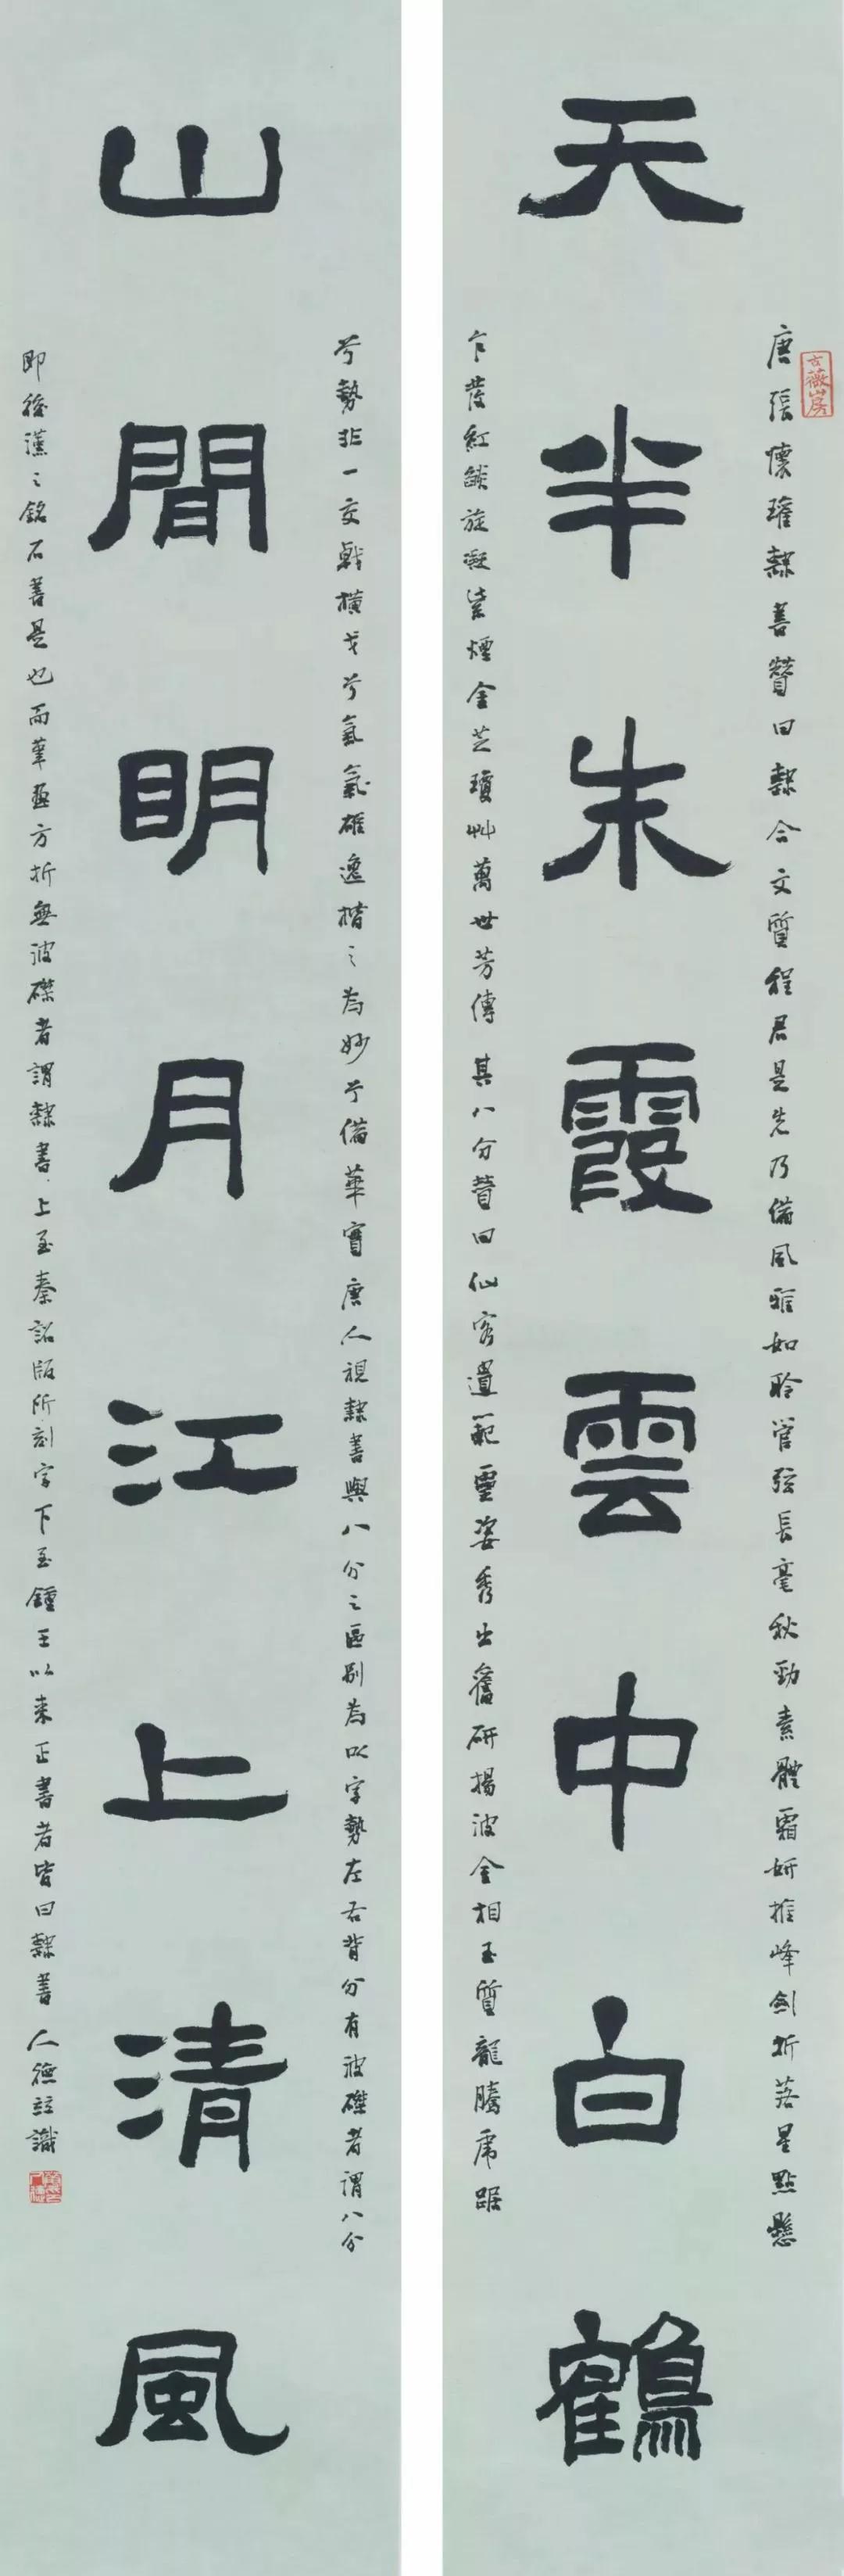 天半朱霞雲中白鶴
唐張懷瓘隸書贊曰隸合文質程君是先乃備風雅如聆管弦長毫秋勁素體霜妍摧峰劍折落星點懸
乍發紅燄旋凝紫煙金芝瓊艸萬世芳傳其八分贊曰仙客遺範靈姿秀出奮研揚波金相玉質龍騰虎踞
山間明月江上清風
兮勢非一交戟橫戈兮氣雄逸楷之為妙兮備華實唐人視隸書與八分之區別為以字勢左右背分有波磔者謂八分
即後漢之銘石書是也而筆畫方折無波磔者謂隸書上至秦詔版所刻字下至鍾王以來正書者皆曰隸書人德並識